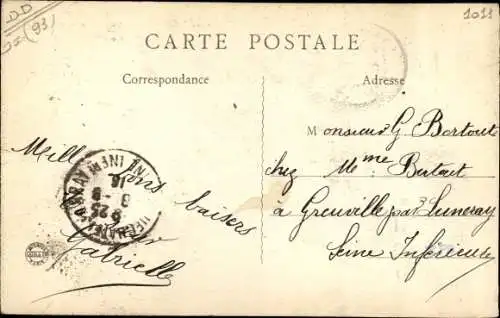 DD
(93)
1011
CARTE POSTALE
Correspondance
Adresse
Mille bons baisers
Gabrielle
Monsieur G. Bertout
chez Mme Bertout
à Greuville par Luneray
Seine Inférieure